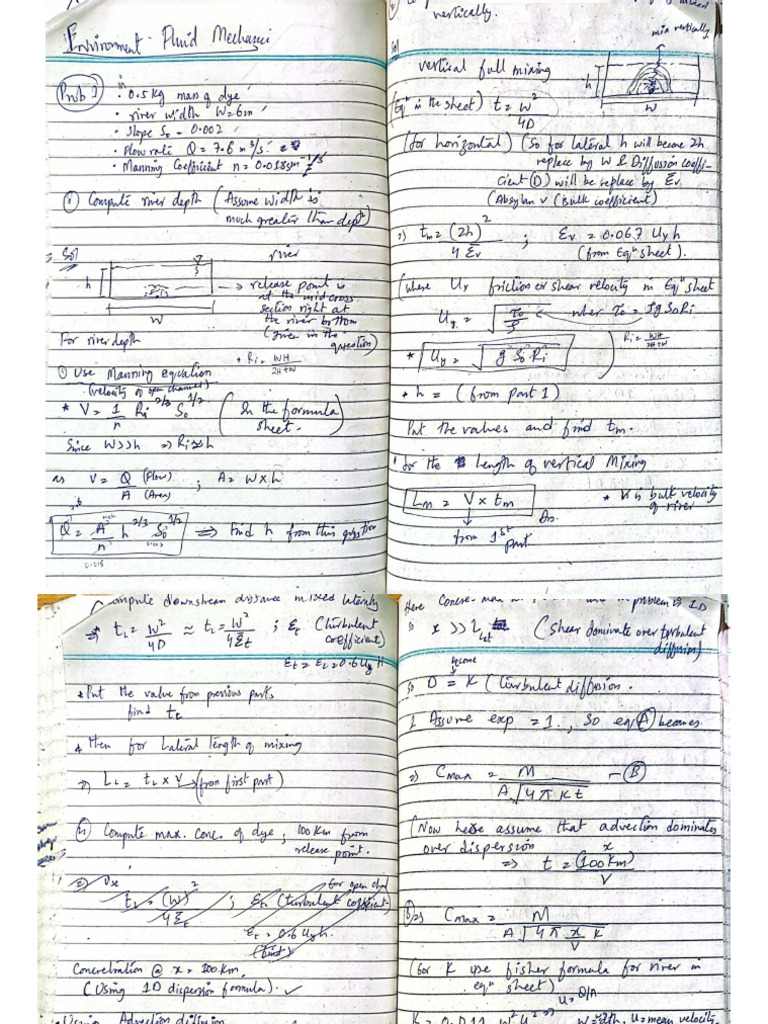 Environment Fluid Mechanics
Prob 1
• 0.5 kg mass of dye
• river width W=6m
• Slope S₀ = 0.002
• Flow rate Q = 7.6 m³/s
• Manning Coefficient n = 0.018 sm^-1/3
Compute river depth (Assume width is
much greater than depth)
Sol
river
h
W
→ release point is
at the mid cross
section right at
the river bottom
(given in the
question)
For river depth
* Ri = WH/2H+W
① Use Manning equation
(velocity of open channel)
* V = 1/n Ri^2/3 S₀^1/2 (In the formula
sheet.)
Since W>>h ⇒ Ri≈h
as V = Q (Flow)/A (Area) ; A = W×h
Q = A/n h^2/3 S₀^1/2 ⇒ find h from this question
0.018
vertically.
mix vertically
Sol
vertical full mixing
h
W
(Eqⁿ in the sheet) t = W²/4D
(for horizontal) (So for lateral h will become 2h
replace by W & Diffusion coeffi-
cient (D) will be replace by Ev
(Bulk coefficient)
⇒ tm = (2h)²/4Ev ; Ev = 0.067 Uy h
(from Eqⁿ sheet).
(where Uy friction or shear velocity in Eqⁿ sheet
Uy = √τ₀/ρ ← wher τ₀ = ρg S₀Ri
Ri = WH/2H+W
* Uy = √g S₀ Ri
* h = (from part 1)
Put the values and find tm.
* for the Length of vertical Mixing
Lm = V × tm
* V is bulk velocity
of river
from 1st
part.
Ans.
Compute downstream distance mixed laterally
⇒ tL = W²/4D ≈ tL = W²/4Et ; Et (turbulent
coefficient)
Et = EL = 0.6 Uy H
* Put the value from previous parts
find tL
* then for Lateral length of mixing
⇒ LL = tL × V → (from first part)
4) Compute max. Conc. of dye, 100 km from
release point.
tL = (W)²/4Et ; Et (turbulent coefficient)
Et = 0.6 Uy h.
Concentration @ x = 100 km,
(Using 1D dispersion formula). ✓
Using Advection diffusion
problem is 1D
x >> Llat (Shear dominate over turbulent
diffusion)
become
so D = K (turbulent diffusion.
& Assume exp = 1, So eqⁿ (A) becomes
⇒ Cmax = M/A√4πKt — (B)
(Now here assume that advection dominates
over dispersion
⇒ t = x (100km)/V
(B) ⇒ Cmax = M/A√4π x/V K
(for K use fisher formula for river in
eqⁿ sheet)
u = Q/A
K = 0.011 W² U² ⇒ W = width, U = mean velocity